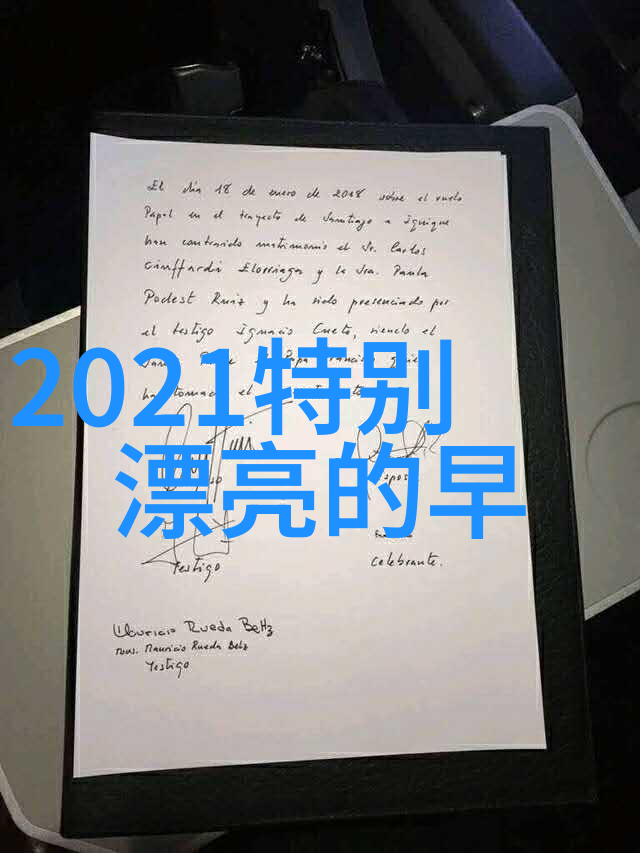 El día 18 de enero de 2018 sobre el vuelo
Papal en el trayecto de Santiago a Iquique
han contraido matrimonio el Sr. Carlos
Ciuffardi Elorriaga y la Sra. Paula
Podest Ruiz y ha sido presenciado por
el testigo Ignacio Cueto, siendo el
Papa
2021特别
漂亮的早
Testigo
Celebrante.
Mauricio Rueda Beltz
Mons. Mauricio Rueda Beltz
Testigo